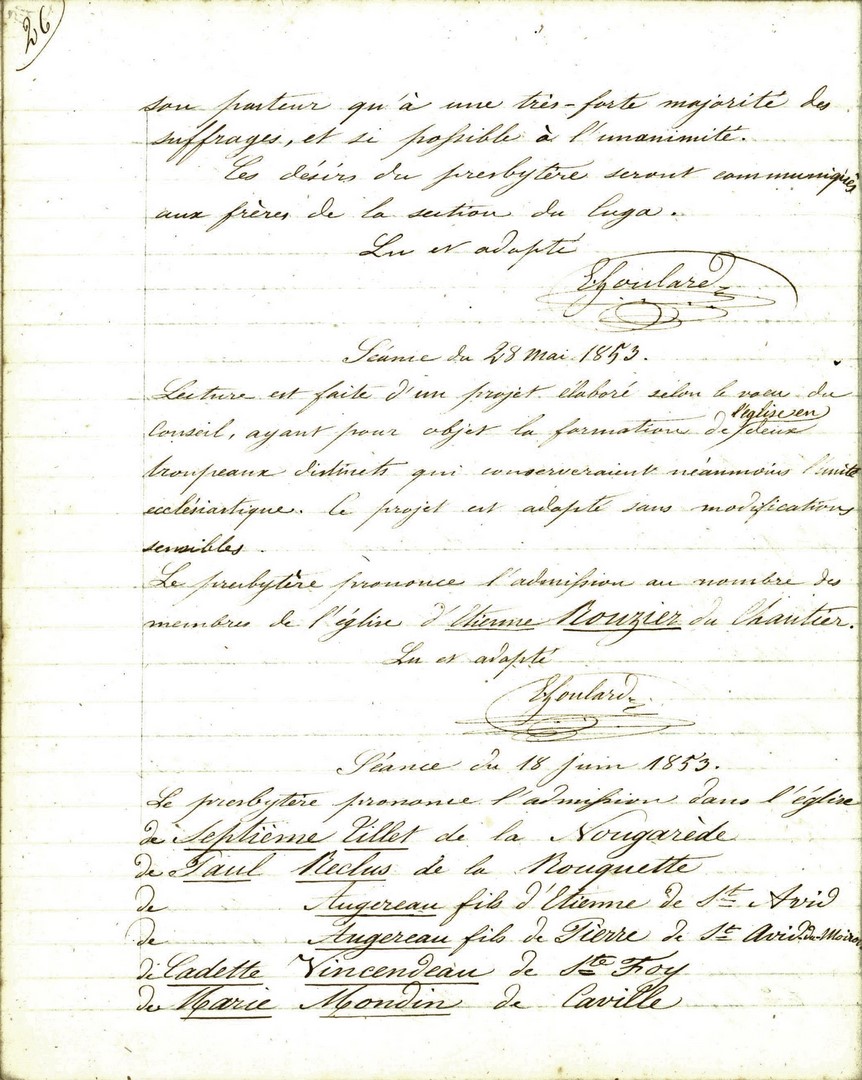 26
son pasteur qu'à une très-forte majorité des
suffrages, et si possible à l'unanimité.
Les désirs du presbytère seront communiqués
aux frères de la section du Luga.
Lu et adopté
Séance du 28 mai 1853.
Lecture est faite d'un projet élaboré selon le voeu du
Conseil, ayant pour objet la formation de l'église en deux
troupeaux distincts qui conserveraient néanmoins l'unité
ecclésiastique. Ce projet est adopté sans modifications
sensibles.
Le presbytère prononce l'admission au nombre des
membres de l'église d'Etienne Rouzier du Chantier.
Lu et adopté
Séance du 18 juin 1853.
Le presbytère prononce l'admission dans l'église
de Septième Tillet de la Nougarède
de Paul Reclus de la Rouquette
de Augereau fils d'Etienne de St. Avid
de Augereau fils de Pierre de St. Avid-du-Moiron
de Cadette Vincendeau de Ste Foy
de Marie Mondin de Caville